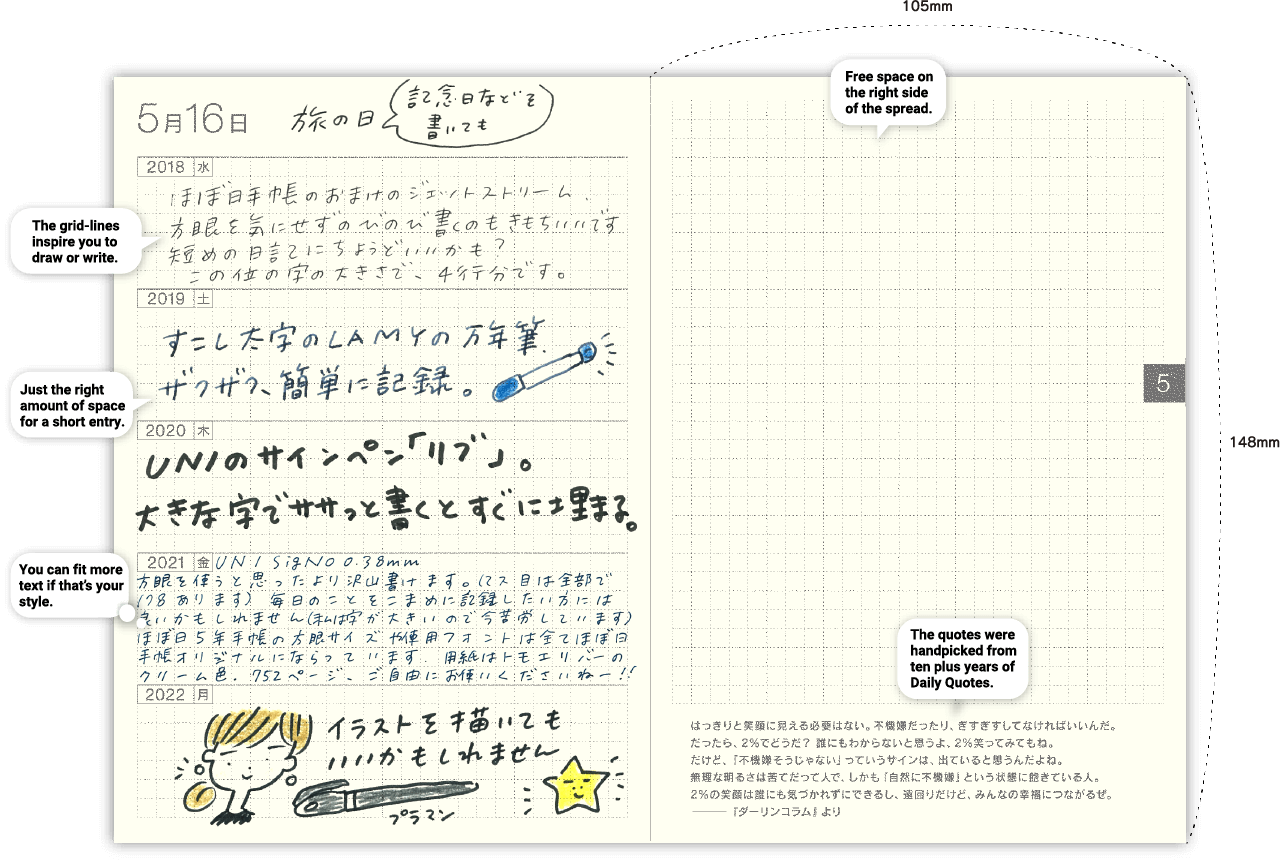 105mm
Free space on
the right side
of the spread.
5月16日
旅の日
記念日などを
書いても
2018 水
ほぼ日手帳のおまけのジェットストリーム.
方眼を気にせずのびのび書くのもきもちいいです
短めの日記にちょうどいいかも?
この位の字の大きさで、4行分です。
The grid-lines
inspire you to
draw or write.
2019 土
すこし太字のLAMYの万年筆.
ザクザク、簡単に記録。
Just the right
amount of space
for a short entry.
5
148mm
2020 木
UNIのサインペン「リブ」。
大きな字でササっと書くとすぐに埋まる。
2021 金 UNI SigNo 0.38mm
方眼を使うと思ったより沢山書けます。(マス目は全部で
178あります) 毎日のことをこまめに記録したい方には
良いかもしれません(私は字が大きいので今苦労しています)
ほぼ日5年手帳の方眼サイズや使用フォントは全てほぼ日
手帳オリジナルにならっています. 用紙はトモエリバーの
クリーム色. 752ページ、ご自由にお使いくださいねー!!
You can fit more
text if that's your
style.
2022 月
イラストを描いても
いいかもしれません
プラマン
The quotes were
handpicked from
ten plus years of
Daily Quotes.
はっきりと笑顔に見える必要はない。不機嫌だったり、ぎすぎすしてなければいいんだ。
だったら、2%でどうだ? 誰にもわからないと思うよ、2%笑ってみてもね。
だけど、『不機嫌そうじゃない』っていうサインは、出ていると思うんだよね。
無理な明るさは苦てだって人で、しかも『自然に不機嫌』という状態に飽きている人。
2%の笑顔は誰にも気づかれずにできるし、遠回りだけど、みんなの幸福につながるぜ。
——『ダーリンコラム』より